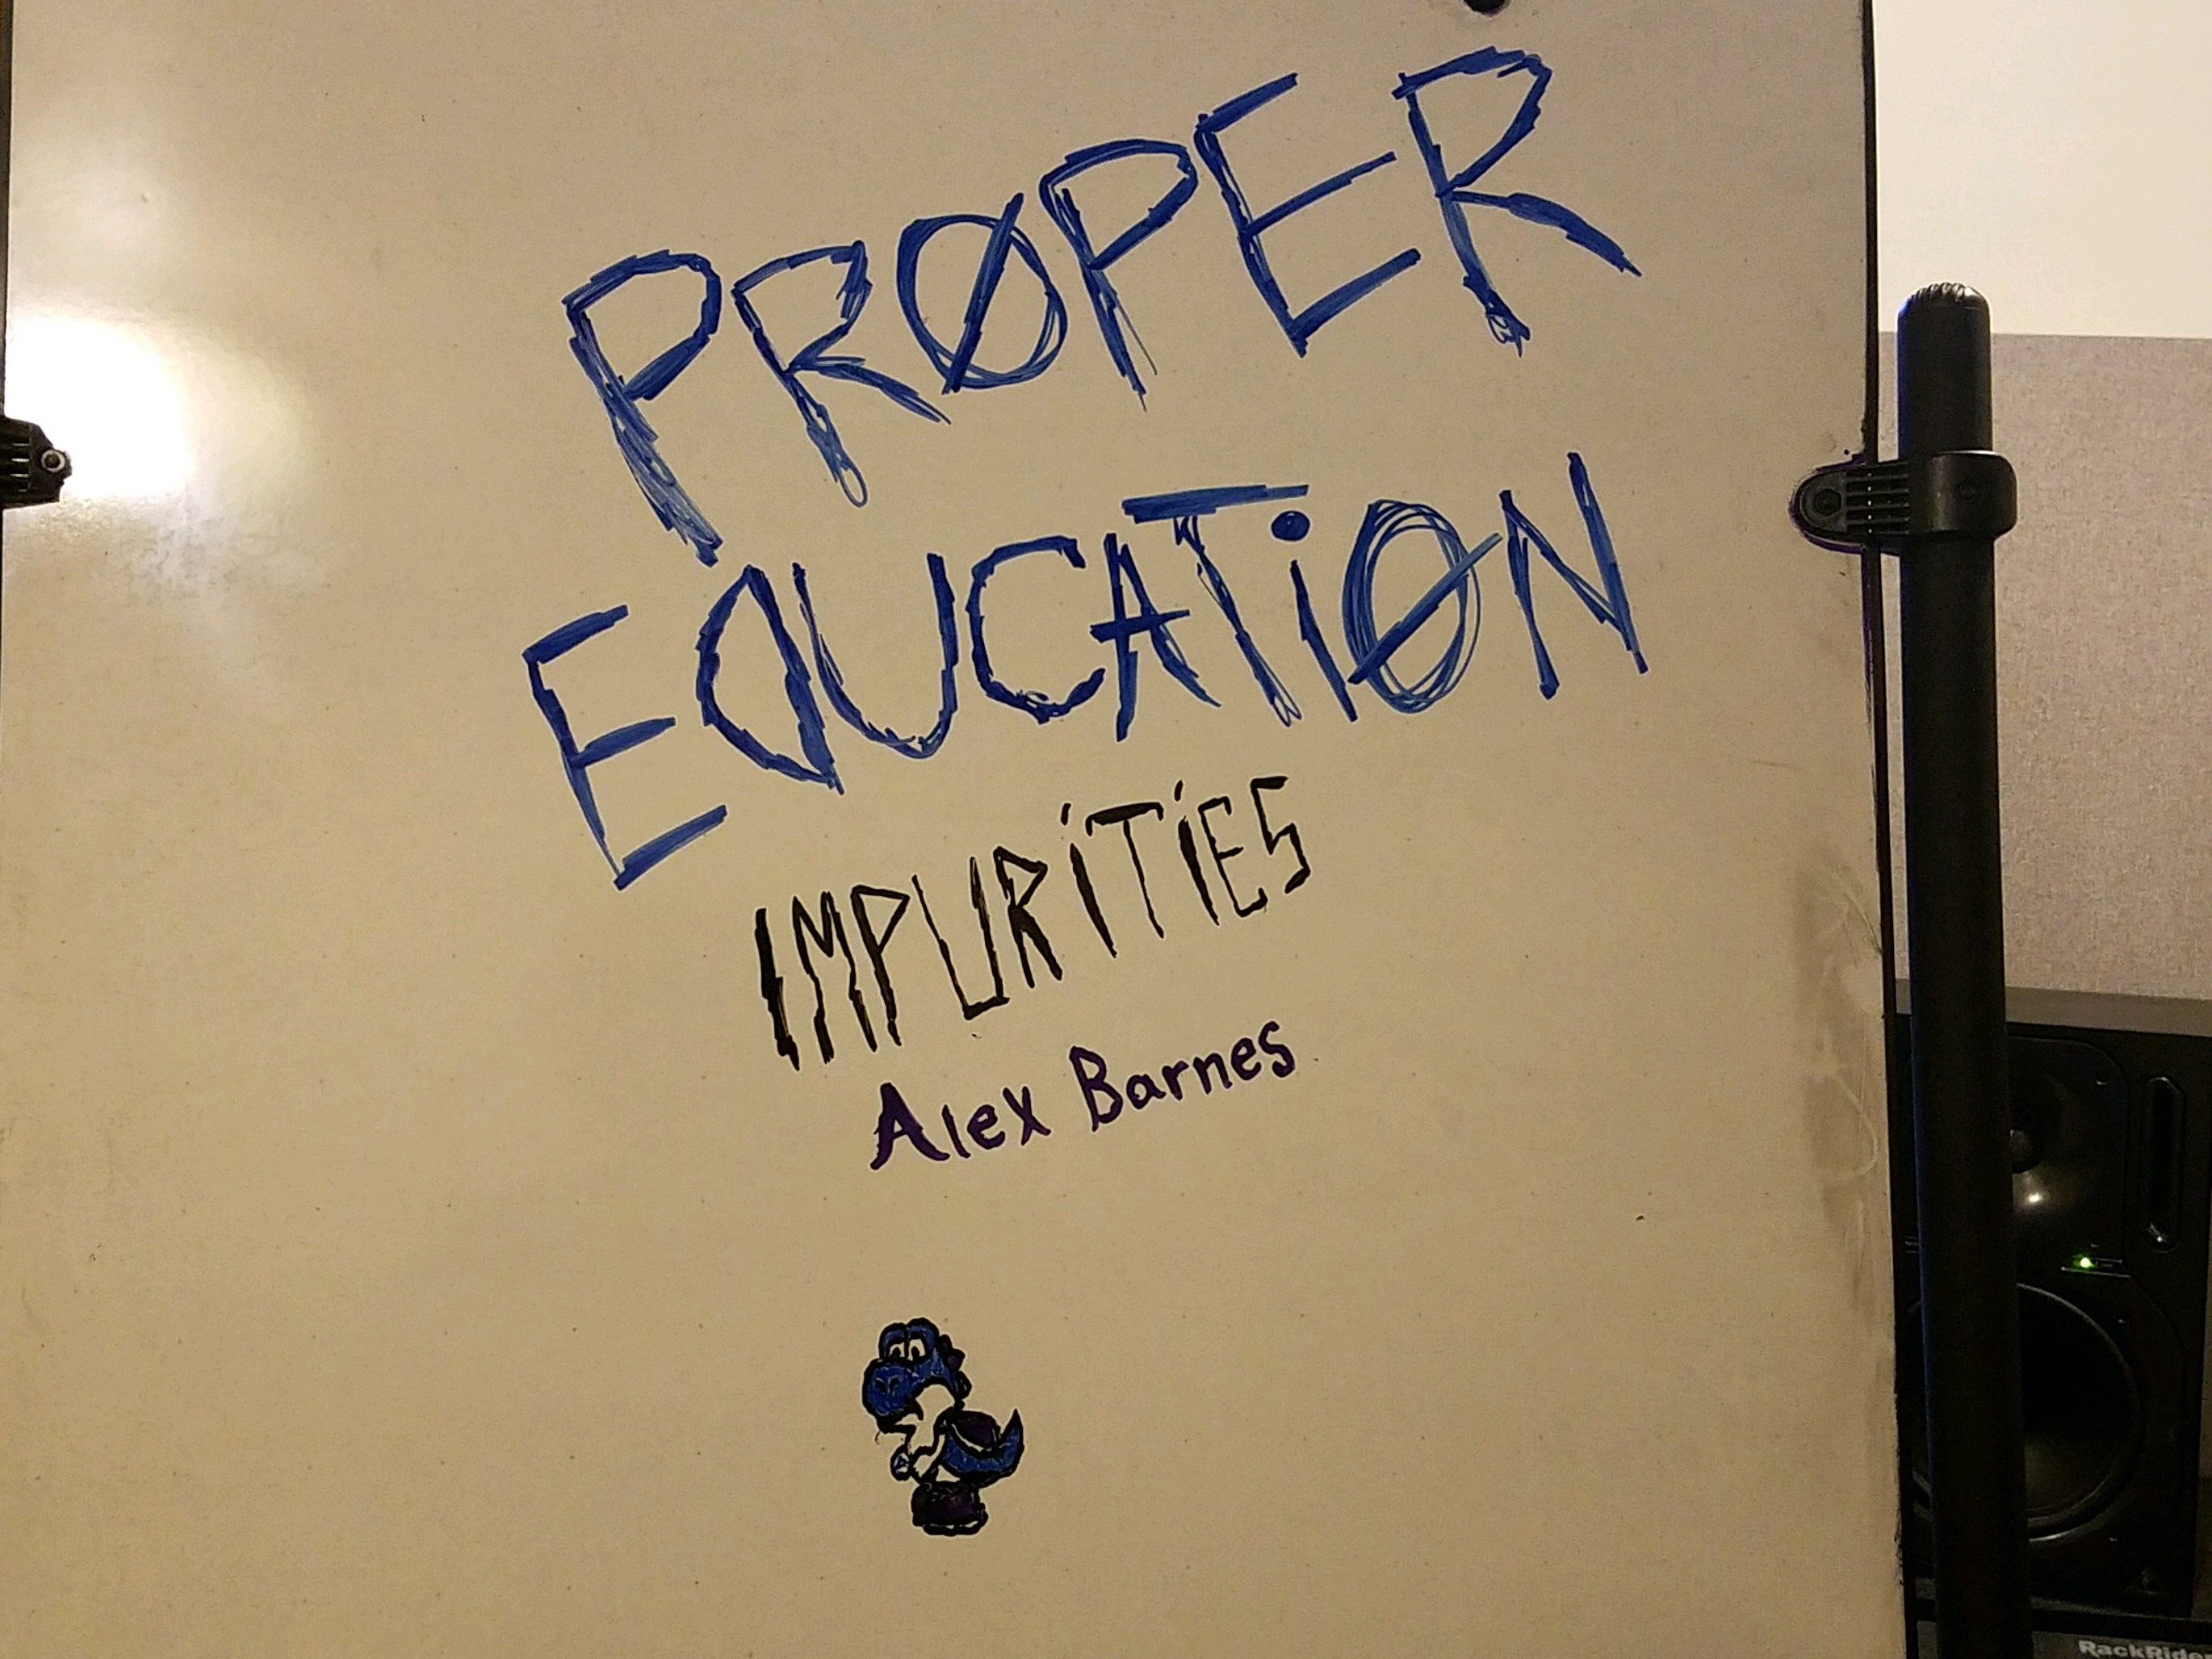 PRØPER
EDUCATiØN
IMPURiTiES
Alex Barnes
RackRide